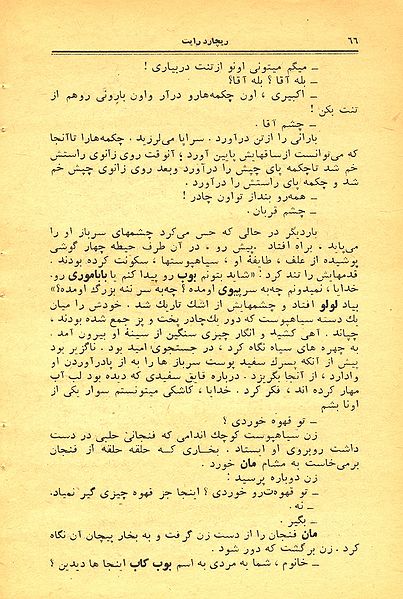 ۶۶ ریچارد رایت
ـ میگم میتونی اونو ازتنت دربیاری !
ـ بله آقا ؟ بله آقا؟
ـ اکبیری ، اون چکمه‌هارو درآر واون بارونی روهم از
تنت بکن !
ـ چشم آقا .
بارانی را ازتن درآورد . سراپا می‌لرزید . چکمه‌هارا تاآنجا
که می‌توانست ازساقهایش پایین آورد ؛ آنوقت روی زانوی راستش
خم شد تاچکمه پای چپش را درآورد وبعد روی زانوی چپش خم
شد و چکمه پای راستش را درآورد .
ـ همه‌رو بنداز تواون چادر !
ـ چشم قربان .
باردیگر در حالی که حس می‌کرد چشمهای سرباز او را
می‌پاید . براه افتاد . پیش رو ، در آن طرف حیطه چهار گوشی
پوشیده از علف ، طایفهٔ او ، سیاهپوستها ، سکونت کرده بودند .
قدمهایش را تند کرد : «شاید بتونم بوب رو پیدا کنم یا باباموری رو.
خدایا ، نمیدونم چه‌به سرپیوی اومده ؟ چه‌به سر ننه بزرگ اومده؟»
بیاد لولو افتاد و چشمهایش از اشك تاریك شد . خودش را میان
یك دسته سیاهپوست که دور یك‌چادر پخت و پز جمع شده بودند .
چپاند . آهی کشید و انگار چیزی سنگین از سینهٔ او بیرون آمد .
به چهره های سیاه نگاه کرد ، در جستجوی امید بود . ناگزیر بود
پیش از آنکه پسرك سفید پوست سرباز ها را به از پادرآوردن او
وادارد ، از آنجا بگریزد . درباره قایق سفیدی که دیده بود لب آب
مهار کرده اند ، فکر کرد . خدایا ، کاشکی میتونستم سوار یکی از
اونا بشم
ـ تو قهوه خوردی ؟
زن سیاهپوست کوچك اندامی که فنجانی حلبی در دست
داشت روبروی او ایستاد . بخاری کـه حلقه حلقه از فنجان
برمی‌خاست به مشام مان خورد .
زن دوباره پرسید :
ـ تو قهوه‌ت‌رو خوردی ؟ اینجا جز قهوه چیزی گیر نمیاد.
ـ نه .
ـ بگیر .
مان فنجان را از دست زن گرفت و به بخار پیچان آن نگاه
کرد . زن برگشت که دور شود .
ـ خانوم ، شما یه مردی به اسم بوب کاب اینجا ها دیدین ؟